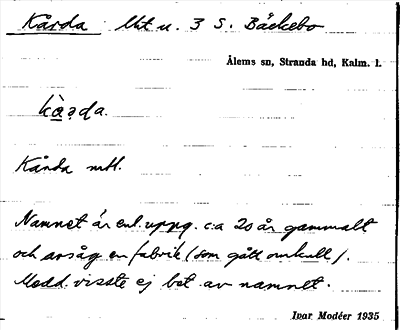 Kårda lht u. 3 S. Bäckebo
Ålems sn, Stranda hd, Kalm. l.
Kårda mtl.
Namnet är enl. uppg. c:a 20 år gammalt
och avsåg en fabrik (som gått omkull).
Medd. visste ej bet. av namnet.
Ivar Modéer 1935